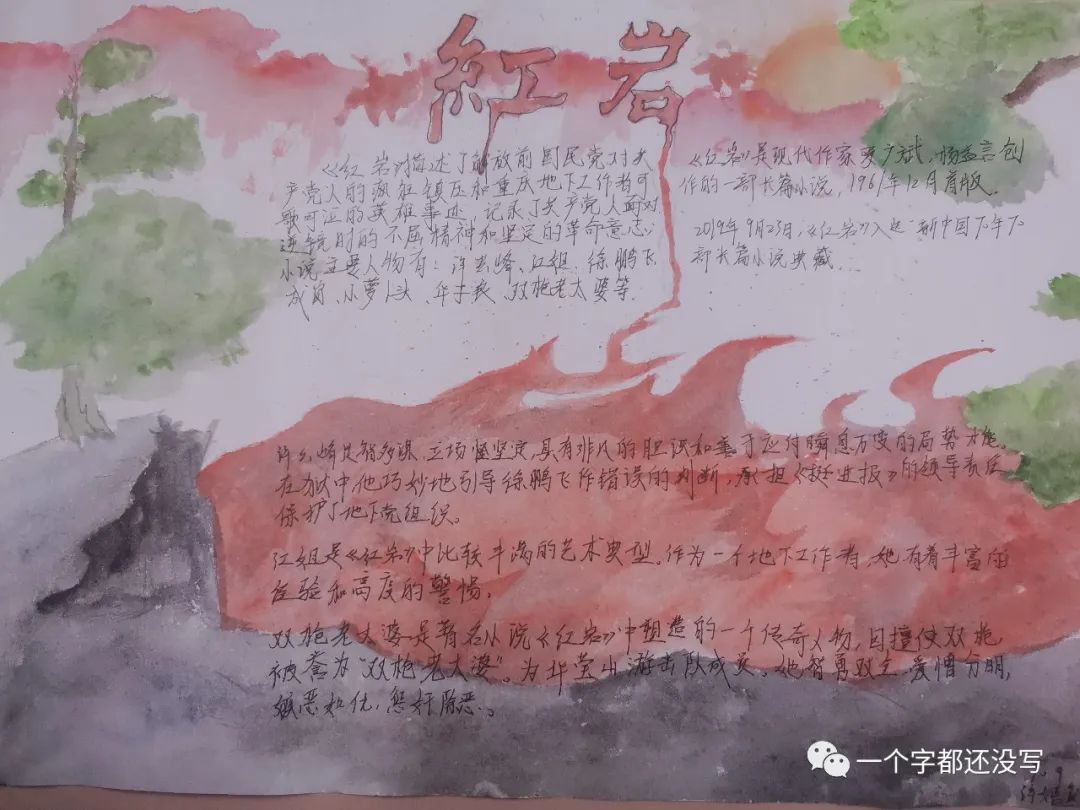 紅岩
《红岩》描述了解放前国民党对共
产党人的疯狂镇压和重庆地下工作者可
歌可泣的英雄事迹，记录了共产党人面对
逆境时的不屈精神和坚定的革命意志。
小说主要人物有：许云峰、江姐、徐鹏飞
成岗、小萝卜头、华子良、双枪老太婆等.
《红岩》是现代作家罗广斌、杨益言创
作的一部长篇小说，1961年12月首版。
2019年9月23日，《红岩》入选"新中国70年70
部长篇小说典藏...
许云峰足智多谋，立场坚定，具有非凡的胆识和善于应付瞬息万变的局势才能。
在狱中，他巧妙地引导徐鹏飞作错误的判断，承担《挺进报》的领导责任
保护了地下党组织。
江姐是《红岩》中比较丰满的艺术典型。作为一个地下工作者，她有着丰富的
经验和高度的警惕。
双枪老太婆是著名小说《红岩》中塑造的一个传奇人物，因擅使双枪
被誉为"双枪老太婆"。为华蓥山游击队成员。她智勇双全，爱憎分明，
嫉恶如仇，惩奸除恶。
一个字都还没写